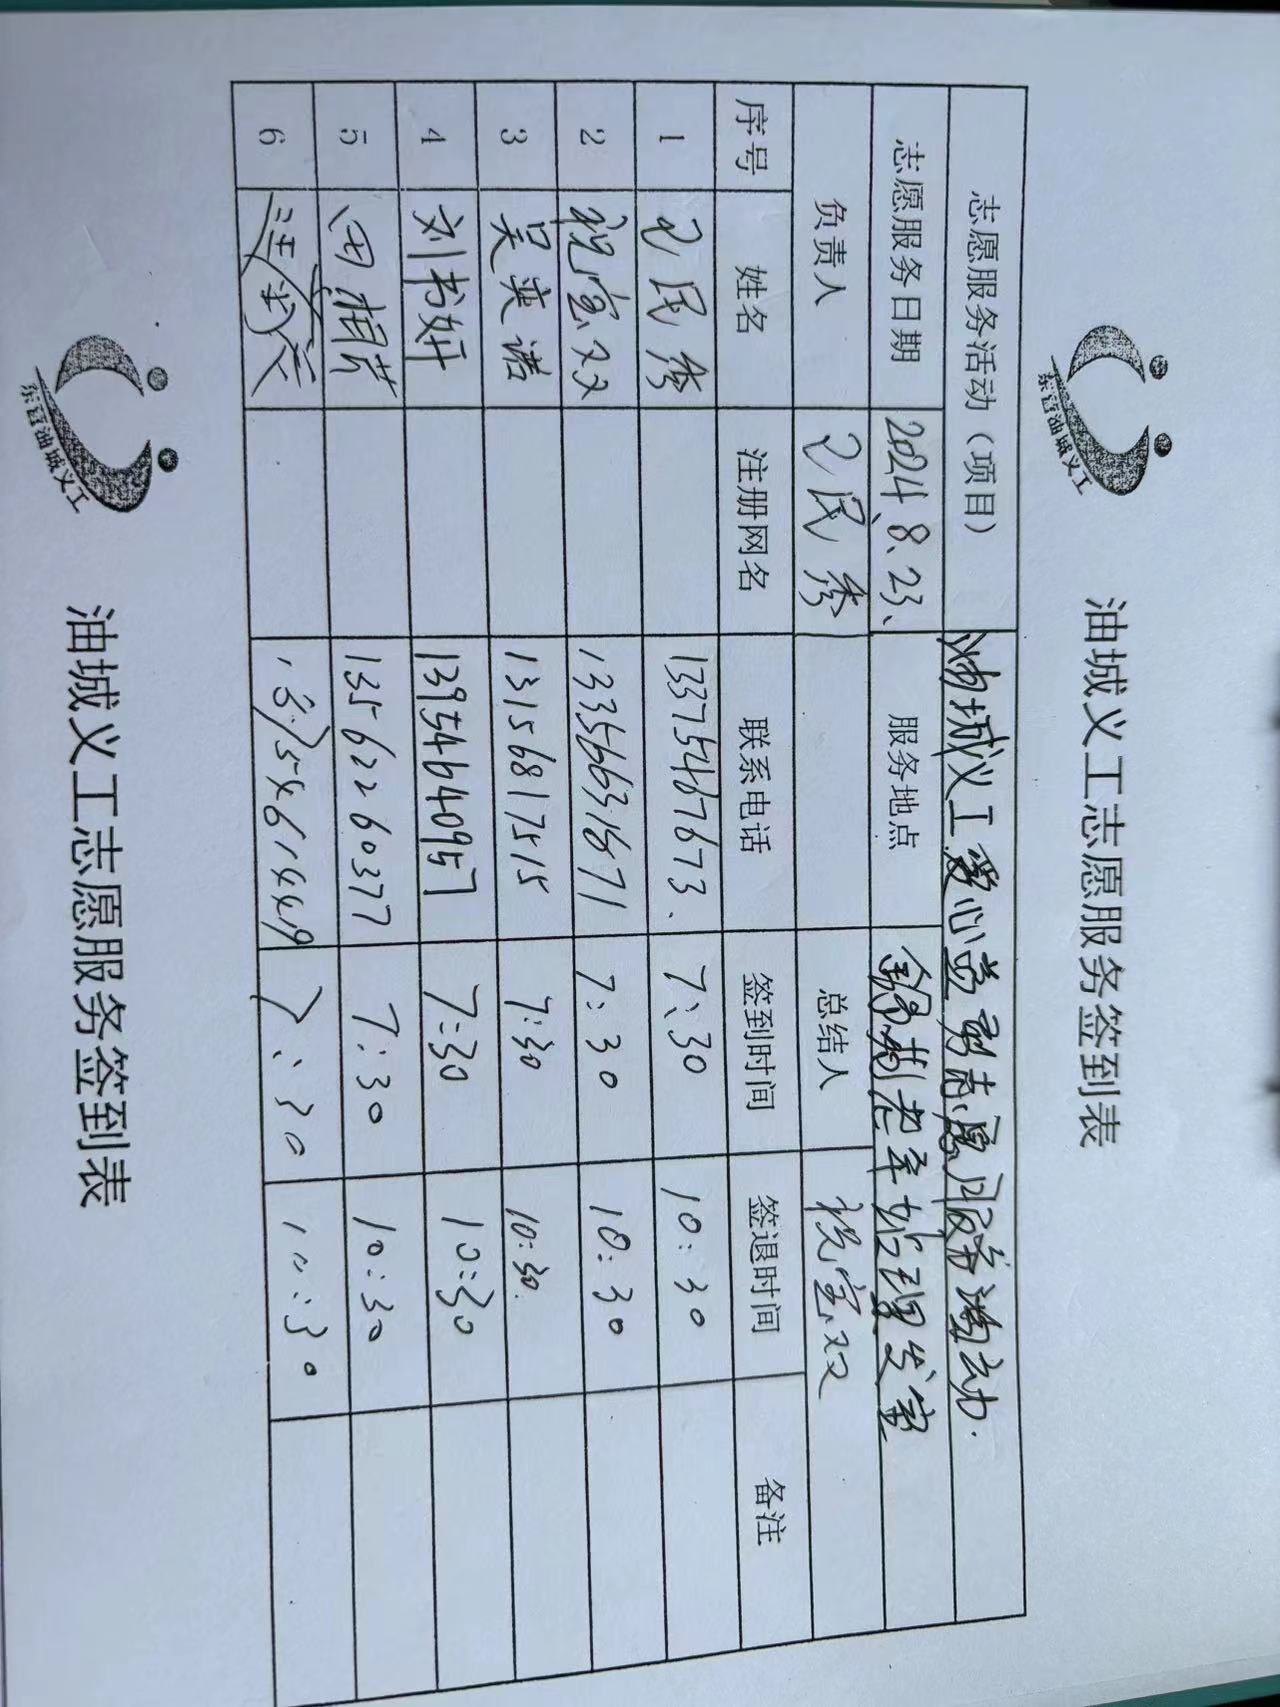 东营油城义工
油城义工志愿服务签到表
志愿服务活动（项目） 油城义工爱心益剪志愿服务活动.
志愿服务日期 2024、8、23、 服务地点 锦苑老年站理发室
负责人 卫民秀 总结人 祝宝双
序号 姓名 注册网名 联系电话 签到时间 签退时间 备注
1 卫民秀 13375467673. 7:30 10:30
2 祝宝双 13356631671 7:30 10:30
3 吴奕诺 13156817515 7:30 10:30.
4 刘书妍 13954640957 7:30 10:30
5 田相芹 13562260377 7:30 10:30
6 7:30 10:30
东营油城义工
油城义工志愿服务签到表